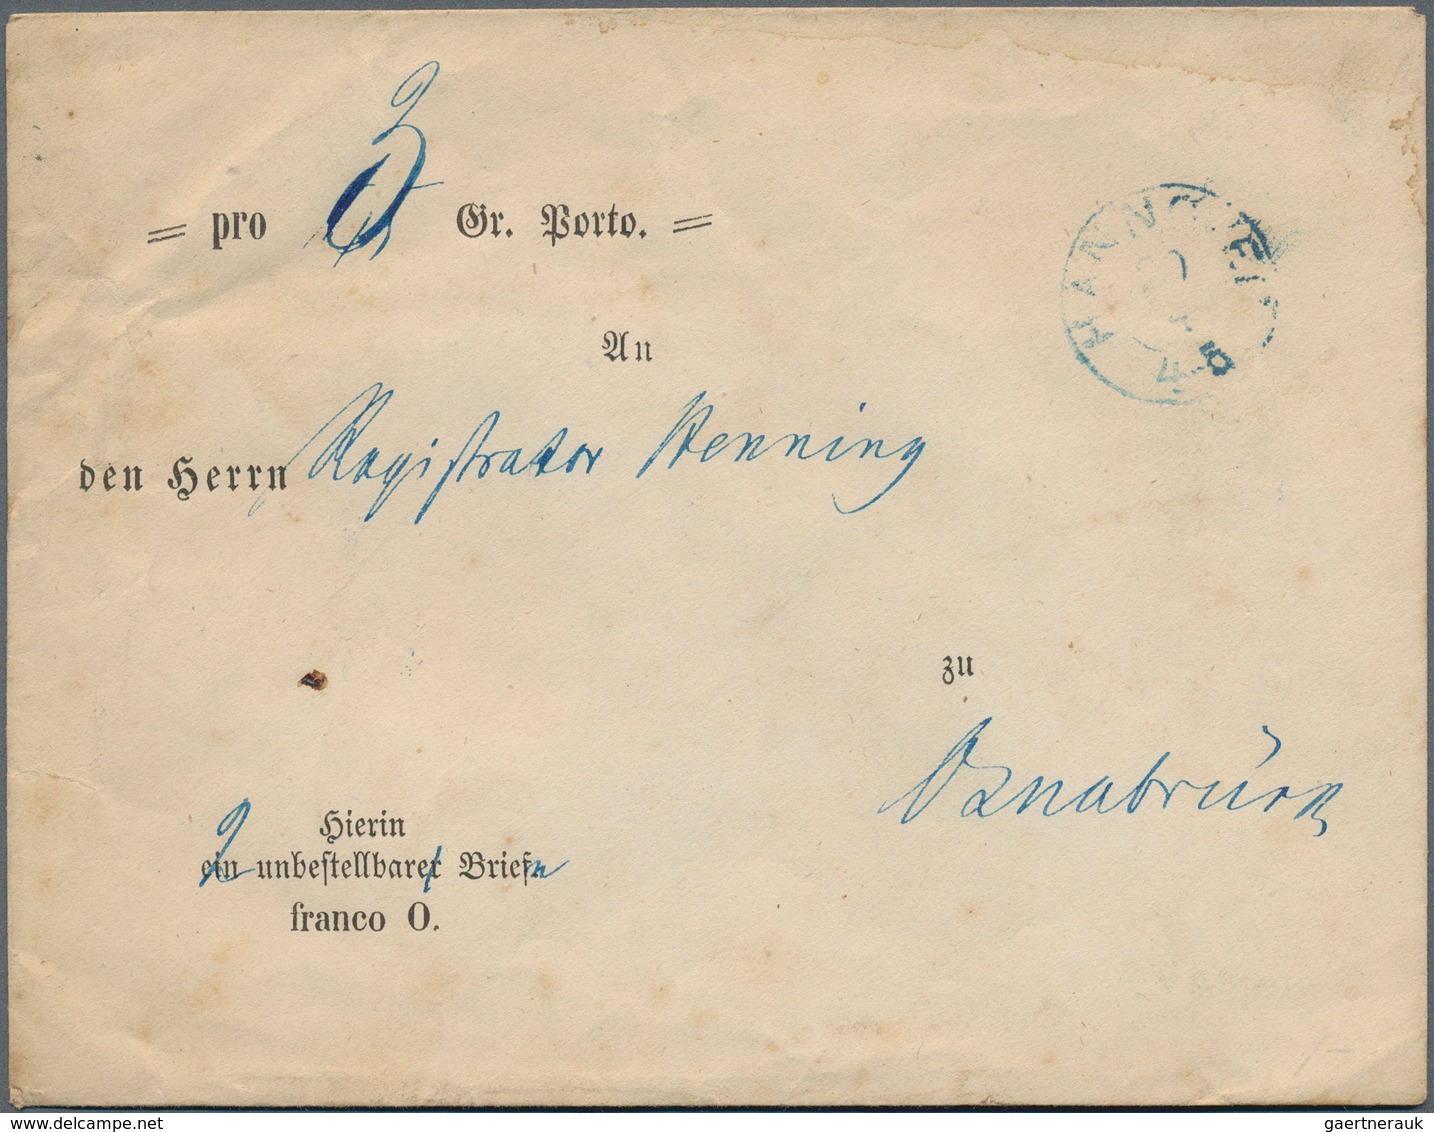 = pro 3 Gr. Porto. =
HANNOVER
4-5
An
den Herrn Registrator Henning
zu
Osnabrück
Hierin
2 ein unbestellbarer Briefn
franco O.
gaertnerauk